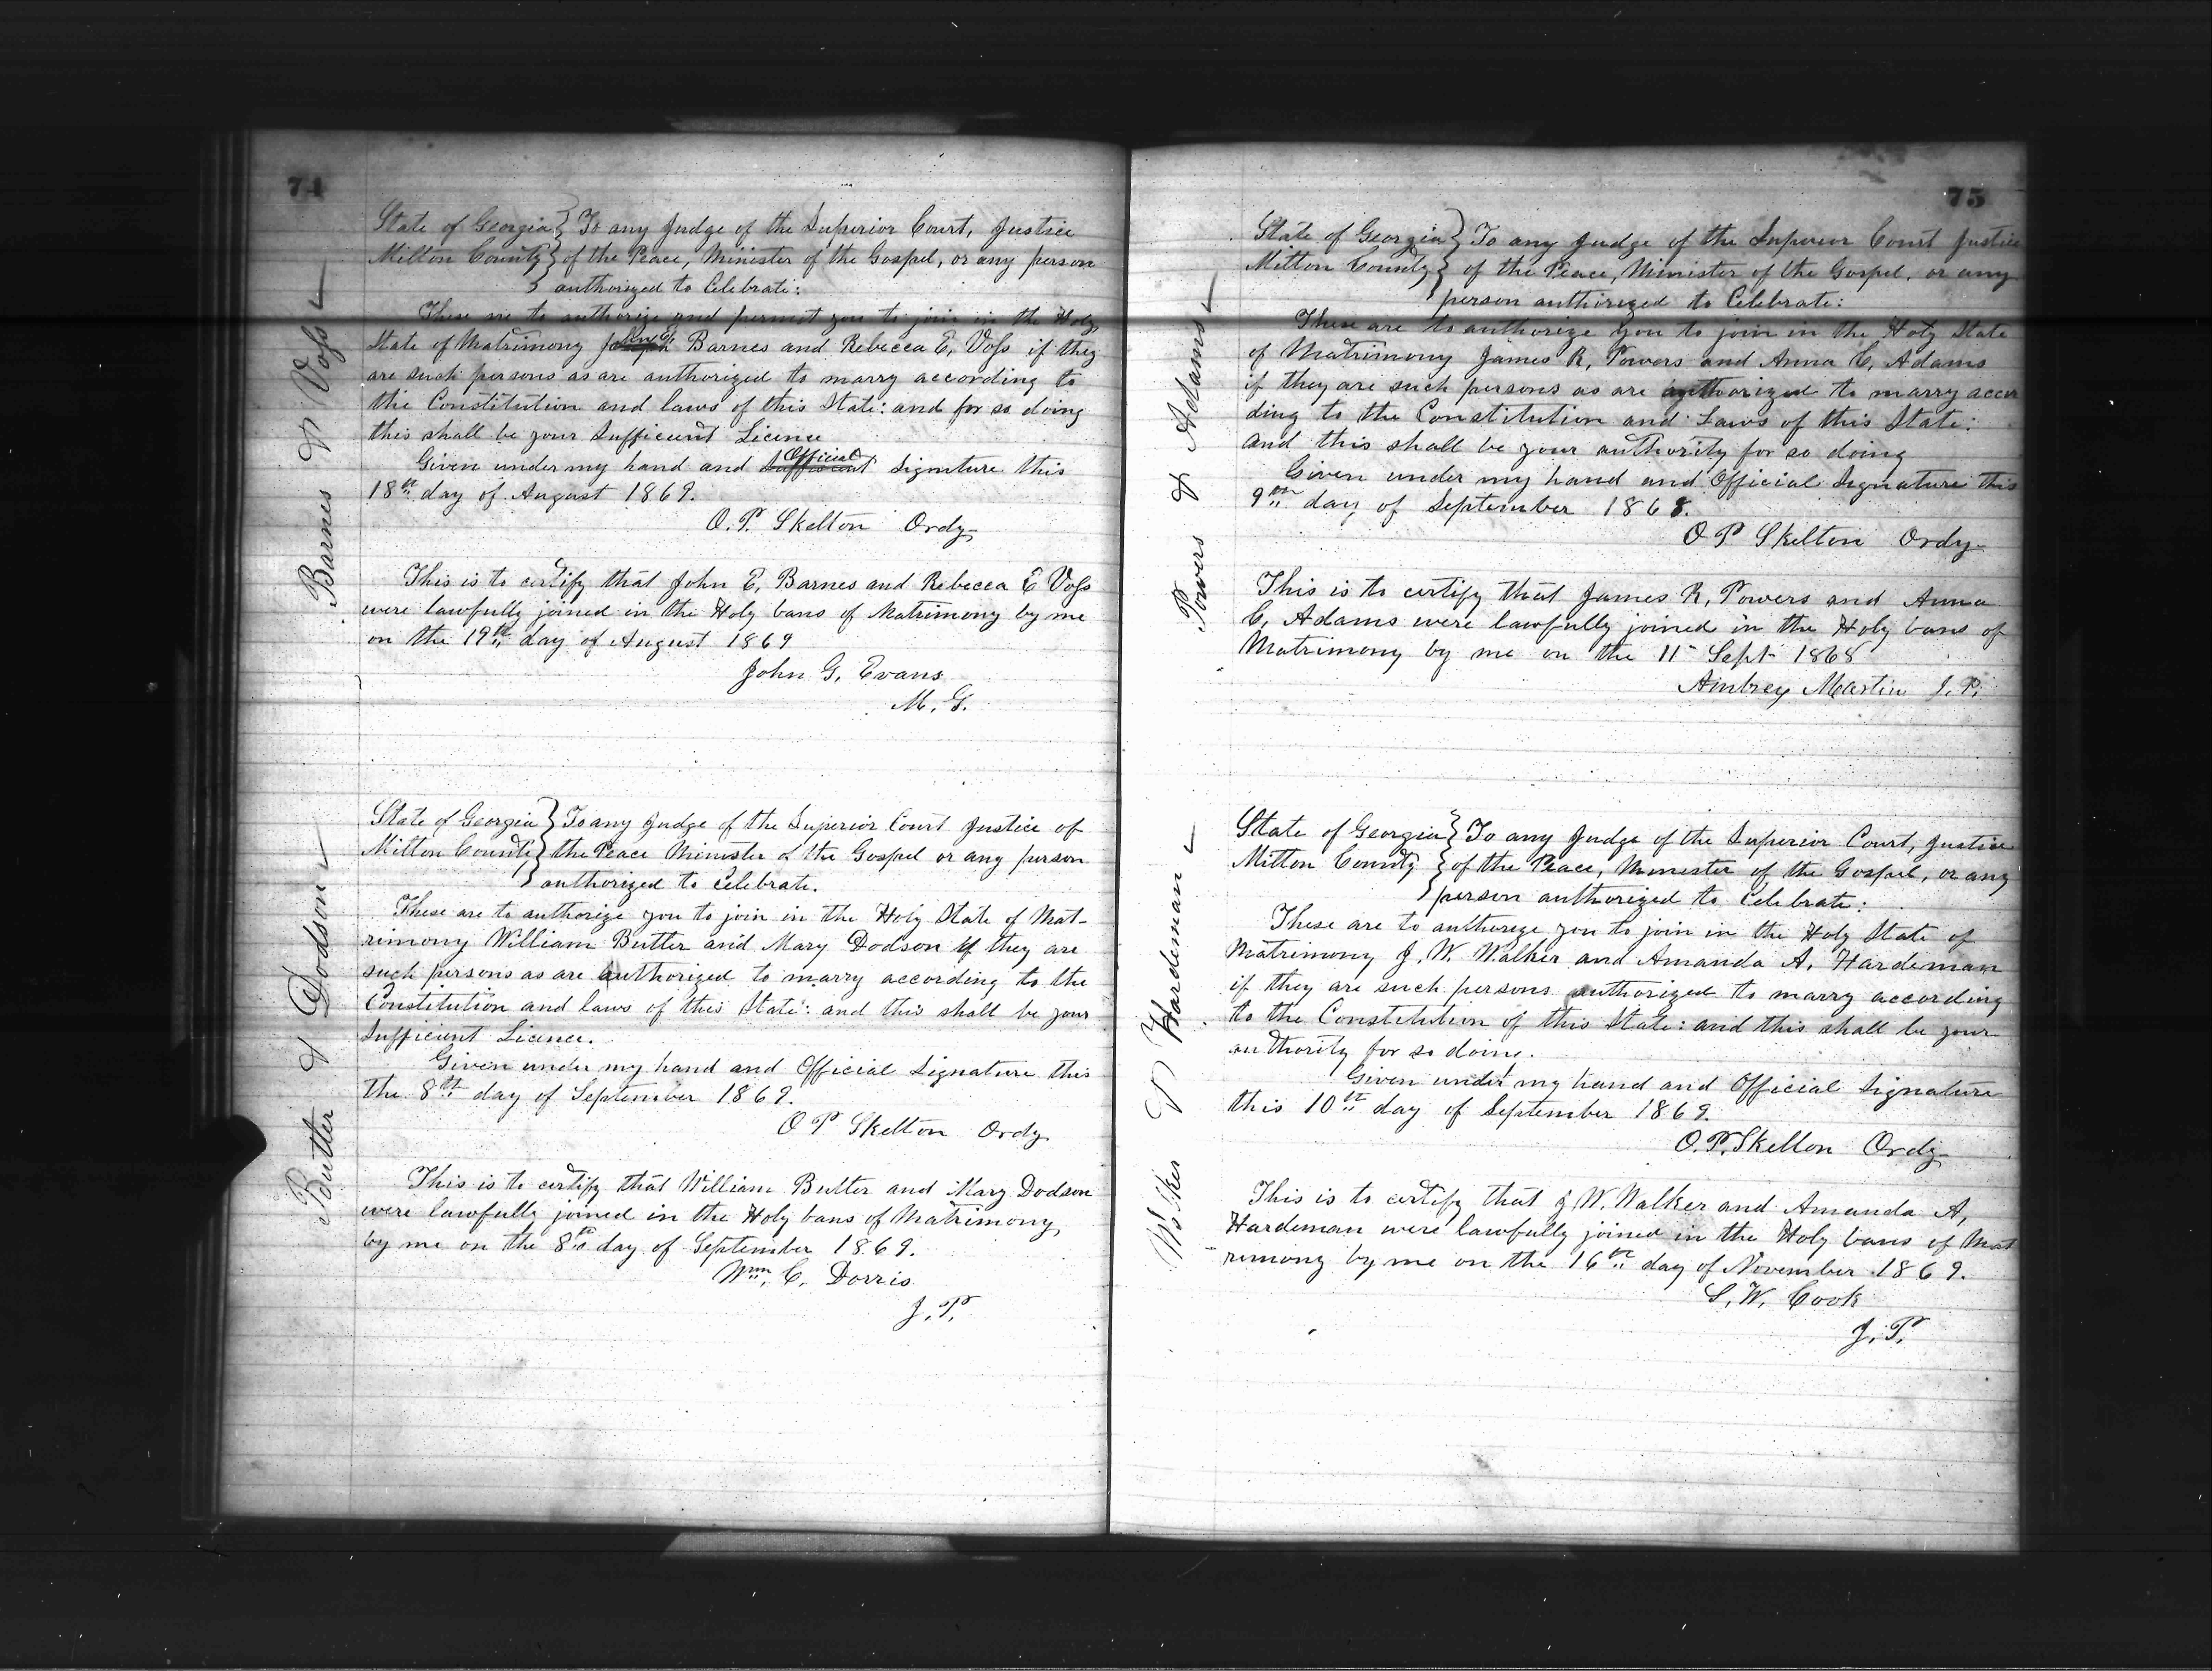 74
Barnes & Voss
State of Georgia } To any Judge of the Superior Court, Justice
Milton County } of the Peace, Minister of the Gospel, or any person
authorized to Celebrate:
These are to authorize and permit you to join in the Holy
State of Matrimony John E. Barnes and Rebecca E, Voss if they
are such persons as are authorized to marry according to
the Constitution and laws of this State: and for so doing
this shall be your Sufficient Licence
Given under my hand and Sufficient Official Signture this
18th day of August 1869.
O. P. Skelton Ordy
This is to certify that John E, Barnes and Rebecca E Voss
were lawfully joined in the Holy bans of Matrimony by me
on the 19th day of August 1869
John G, Evans
M. G.
Butler & Dodson
State of Georgia } To any Judge of the Superior Court Justice of
Milton County } the Peace Minister of the Gospel or any person
authorized to Celebrate.
These are to authorize you to join in the Holy State of Mat-
rimony William Butler and Mary Dodson if they are
such persons as are authorized to marry according to the
Constitution and laws of this State: and this shall be your
Sufficient Licence.
Given under my hand and Official Signature this
the 8th day of September 1869.
O P Skelton Ordy.
This is to certify that William Butler and Mary Dodson
were lawfully joined in the Holy bans of Matrimony
by me on the 8th day of September 1869.
Wm. C. Dorris
J. P.
75
Powers & Adams
State of Georgia } To any Judge of the Superior Court Justice
Milton County } of the Peace, Minister of the Gospel, or any
person authorized to Celebrate:
These are to authorize you to join in the Holy State
of Matrimony James R, Powers and Anna C, Adams
if they are such persons as are authorized to marry accor
ding to the Constitution and Laws of this State:
and this shall be your authority for so doing
Given under my hand and Official Signature this
9th day of September 1868.
O P Skelton Ordy
This is to certify that James R, Powers and Anna
C, Adams were lawfully joined in the Holy bans of
Matrimony by me on the 11 Sept 1868
Ambrey Martin J. P.
Walker & Hardeman
State of Georgia } To any Judge of the Superior Court, Justice
Milton County } of the Peace, Minister of the Gospel, or any
person authorized to Celebrate:
These are to authorize you to join in the Holy State of
Matrimony J. W. Walker and Amanda A, Hardeman
if they are such persons authorized to marry according
to the Constitution of this State: and this shall be your
authority for so doing.
Given under my hand and Official Signature
this 10th day of September 1869.
O. P. Skelton Ordy
This is to certify that J W. Walker and Amanda A,
Hardeman were lawfully joined in the Holy bans of Mat
rimony by me on the 16th day of November 1869.
S, W, Cook
J. P.